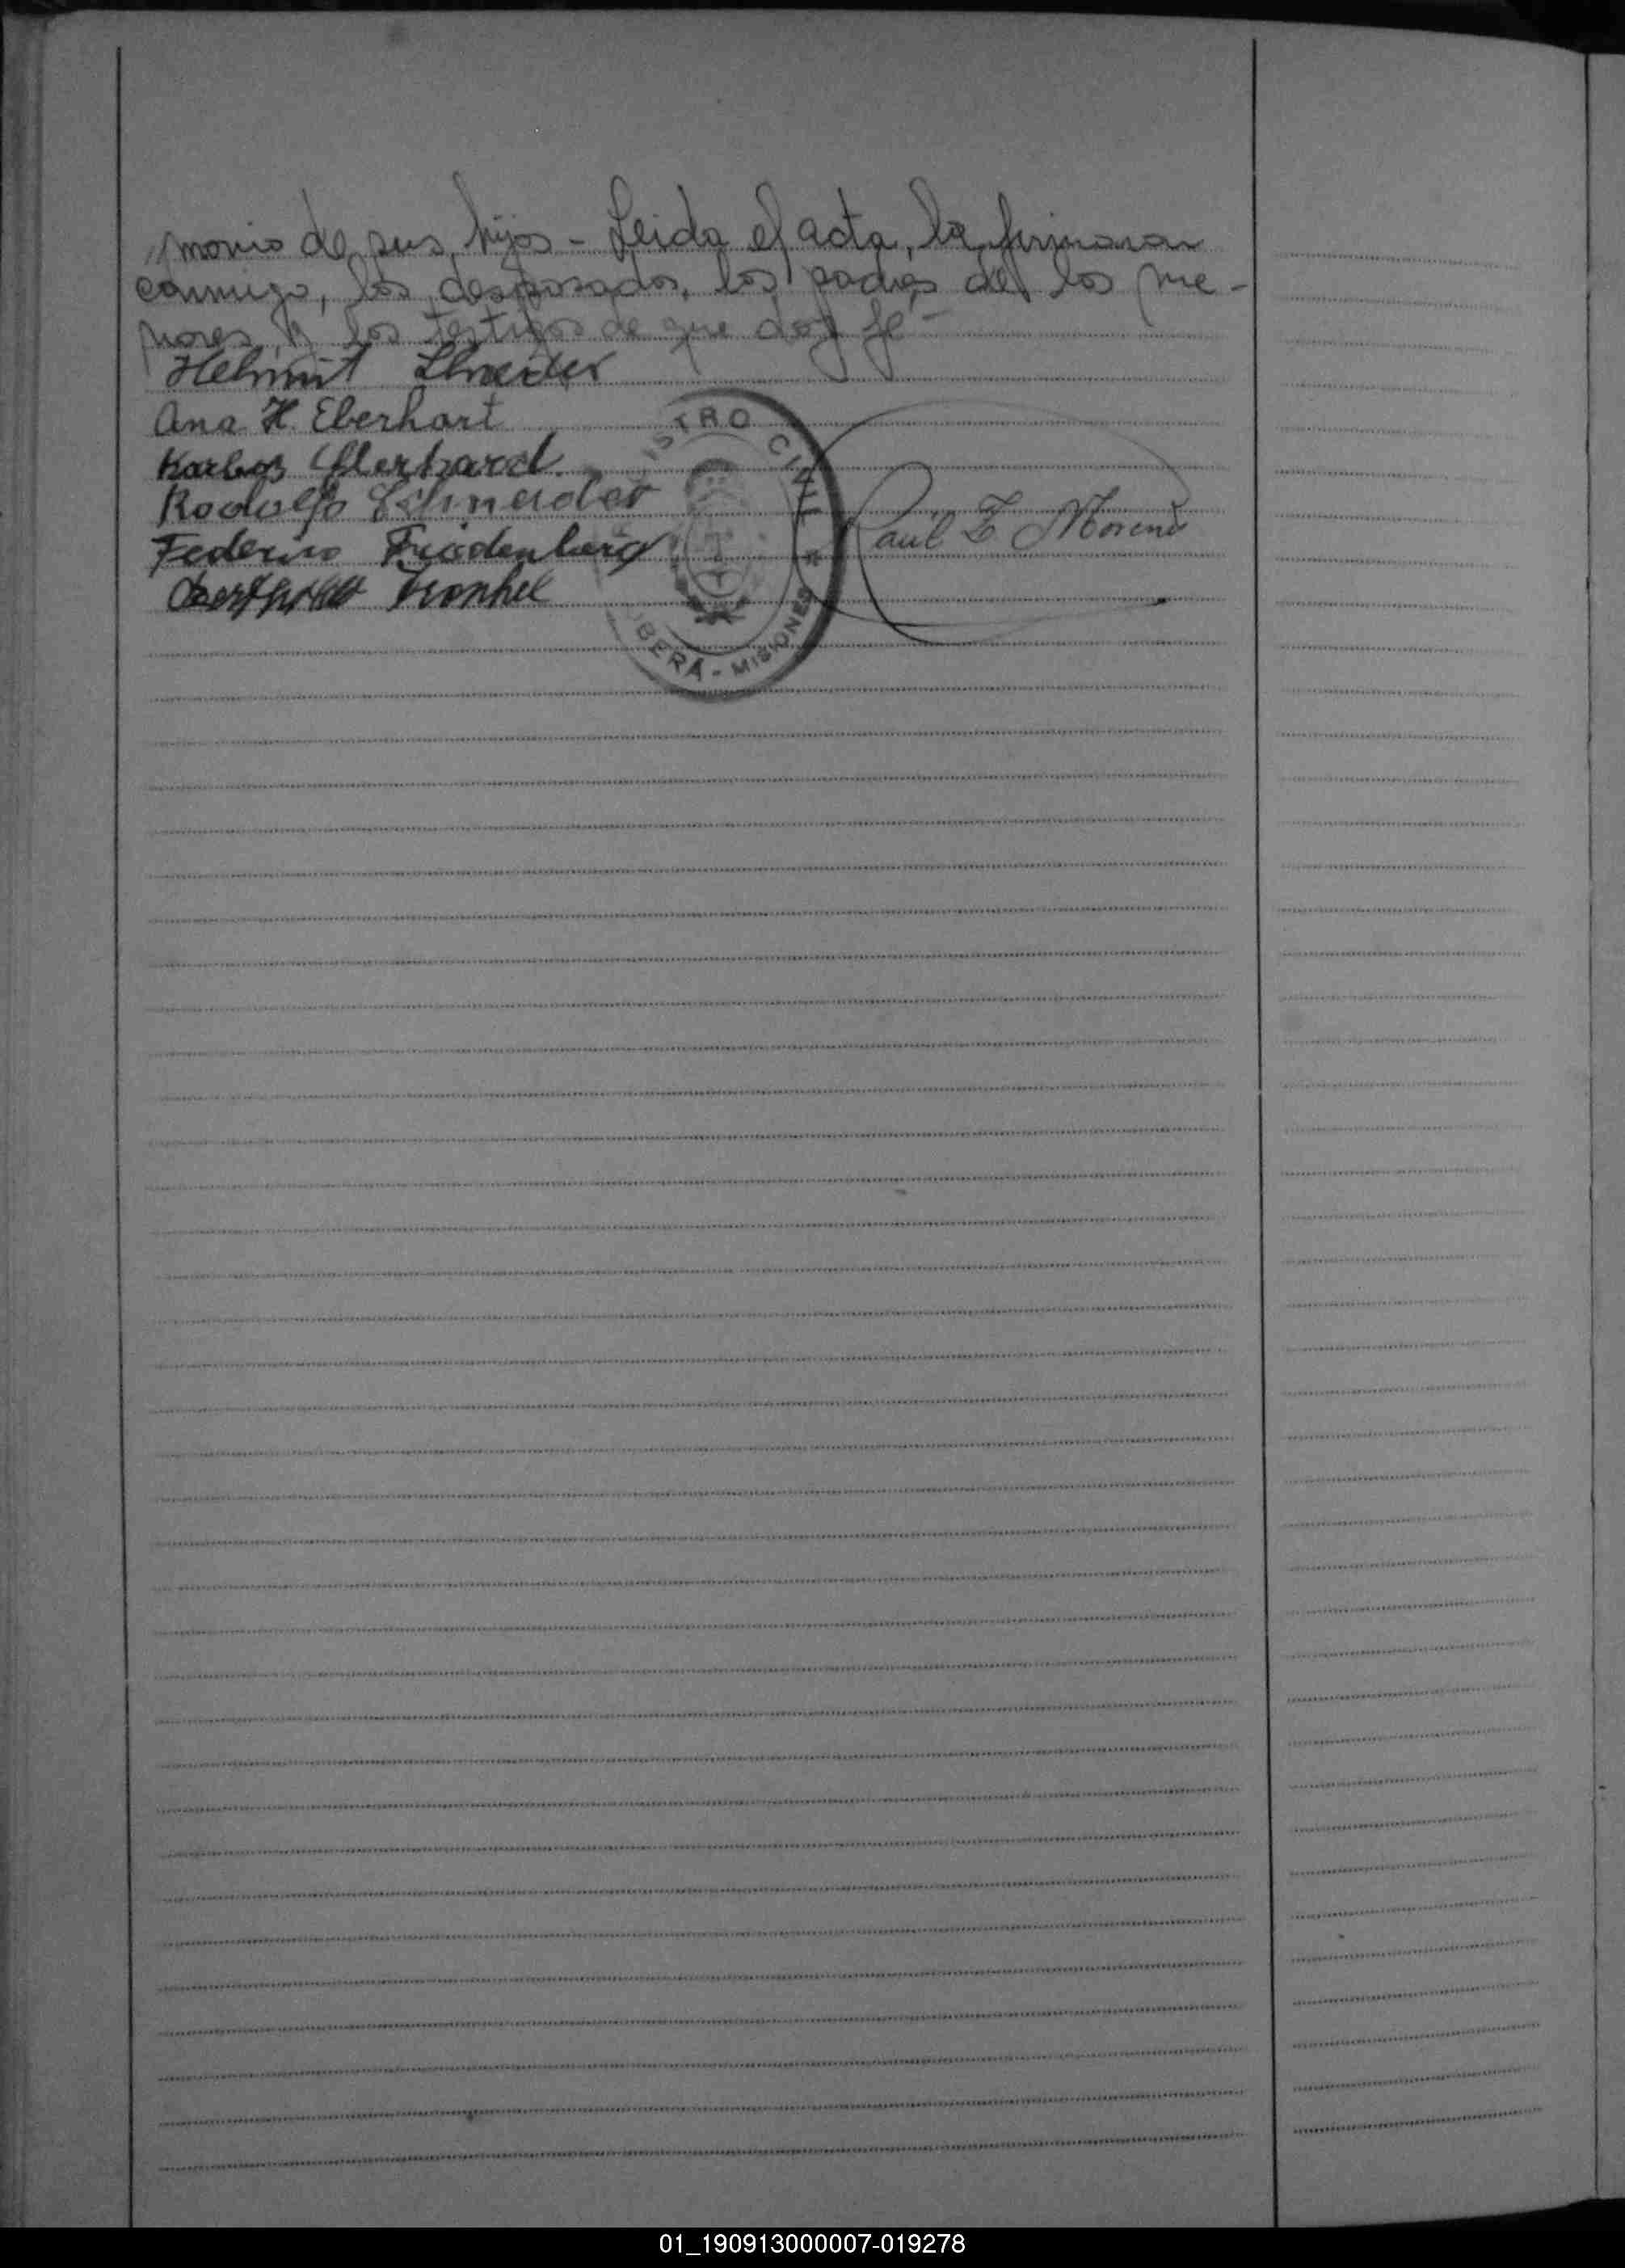 monio de sus hijos - Leida el acta, la firmaron
conmigo, los desposados, los padres de los me-
nores, y los testigos de que doy fé -
Helmut Schneider
Ana H. Eberhart
Karlos Eberhard
Rodolfo Schneider
Federico Friedenberg
ISTRO CIVIL *
OBERA - MISIONES
Raúl Z Moreno
01_190913000007-019278